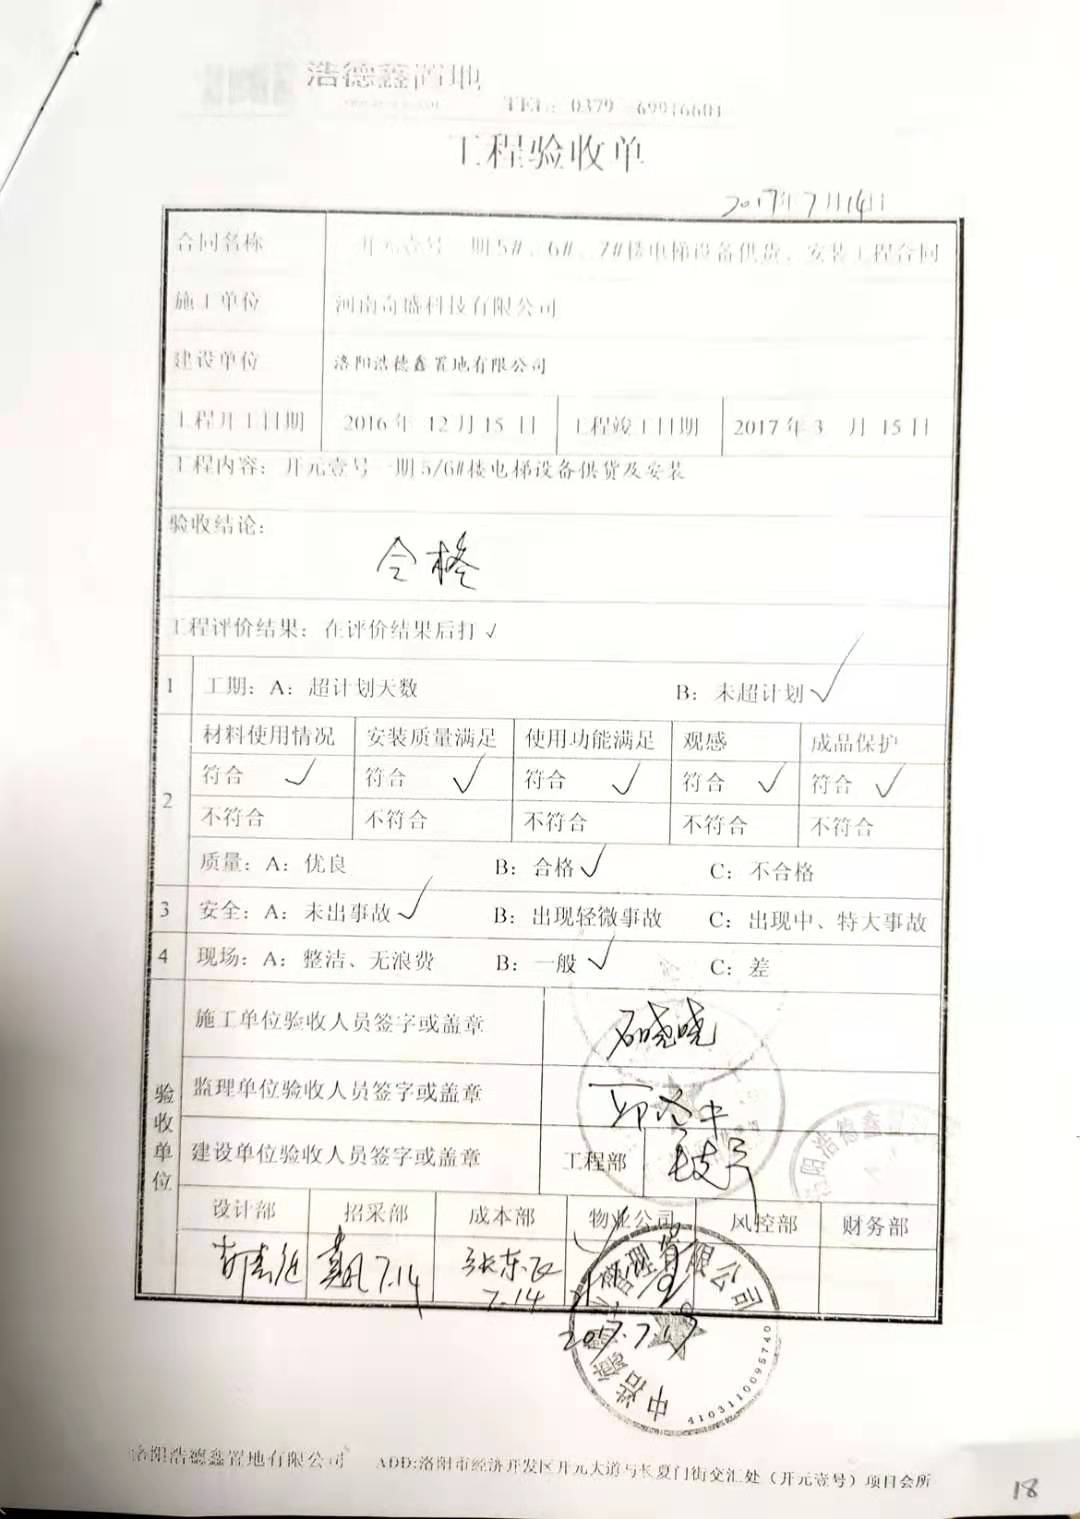 浩德鑫置地
TEL: 0379-69916601
工程验收单
2017年7月14日
合同名称 开元壹号一期5#、6#、7#楼电梯设备供货、安装工程合同
施工单位 河南奇盛科技有限公司
建设单位 洛阳浩德鑫置地有限公司
工程开工日期 2016年 12月15 日 工程竣工日期 2017年3 月 15日
工程内容：开元壹号一期5/6#楼电梯设备供货及安装
验收结论：
合格
工程评价结果：在评价结果后打√
1 工期：A：超计划天数 B：未超计划 √
2 材料使用情况 安装质量满足 使用功能满足 观感 成品保护
符合 √ 符合 √ 符合 √ 符合 √ 符合 √
不符合 不符合 不符合 不符合 不符合
质量：A：优良 B：合格 √ C：不合格
3 安全：A：未出事故 √ B：出现轻微事故 C：出现中、特大事故
4 现场：A：整洁、无浪费 B：一般 √ C：差
验收单位
施工单位验收人员签字或盖章 石晓晓
监理单位验收人员签字或盖章
建设单位验收人员签字或盖章 工程部
设计部 招采部 成本部 物业公司 风控部 财务部
7.14
7.14
2017.7.19
4103110095740
洛阳浩德鑫置地有限公司 ADD:洛阳市经济开发区开元大道与长夏门街交汇处（开元壹号）项目会所
18